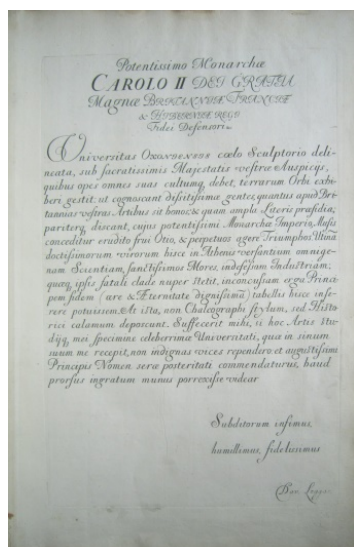 Potentissimo Monarchæ
CAROLO II DEI GRATIA
Magnæ BRITANNIÆ FRANCIÆ
& HYBERNIÆ REGI
Fidei Defensori
Universitas OXONIENSIS cœlo Sculptorio deli-
neata, sub sacratissimis Majestatis vestræ Auspicijs,
quibus opes omnes suas cultumq, debet, terrarum Orbi exhi-
beri gestit: ut cognoscant dissitissimæ gentes, quantus apud Bri-
tannias vestras Artibus sit honor, & quam ampla Literis præsidia;
pariterq, discant, cujus potentissimi Monarchæ Imperia, Musis
conceditur erudito frui Otio, & perpetuos agere Triumphos. Utinã
doctissimorum virorum hisce in Athenis versantium omnige-
nam Scientiam, sanctissimos Mores, indefessam Industriam;
quæq, ipsis fatali clade nuper stetit, inconcussam erga Prin-
cipem fidem (ære & Æternitate dignissima) tabellis hisce inse-
rere potuissem. At ista, non Chalcographi stylum, sed Histo-
rici calamum deposcunt. Suffecerit mihi, si hoc Artis stu-
dijq, mei specimine celeberrimæ Universitati, quæ in sinum
suum me recepit, non indignas vices rependero: et augustissimi
Principis Nomen seræ posteritati commendaturus, haud
prorsus ingratum munus porrexisse videar
Subditorum infimus,
humillimus, fidelissimus
Dav. Loggan